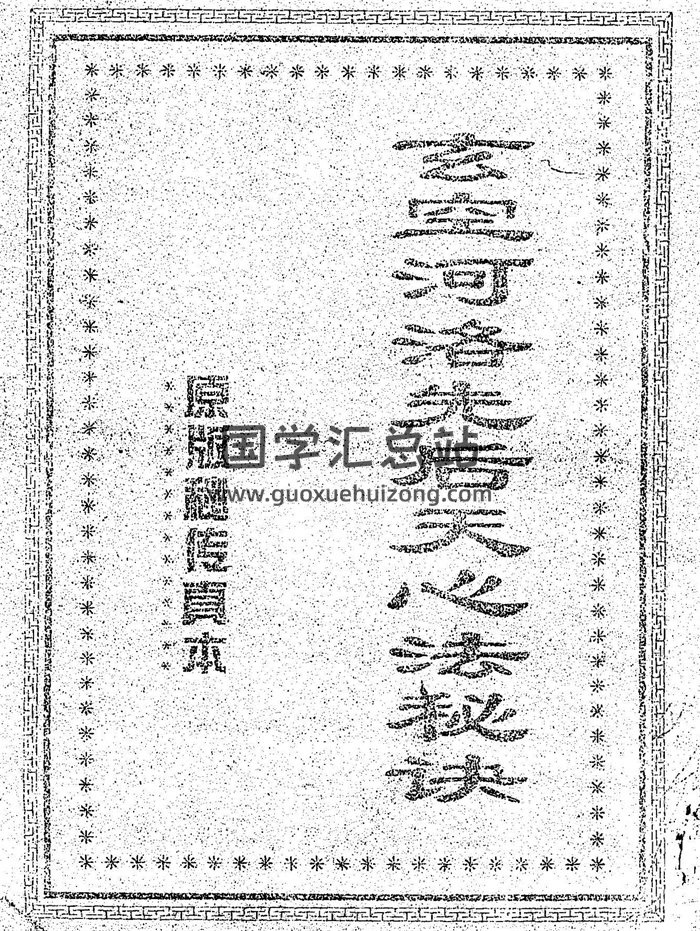 玄空河洛先后天心法秘诀
原版传真本
国学汇总站
www.guoxuehuizong.com